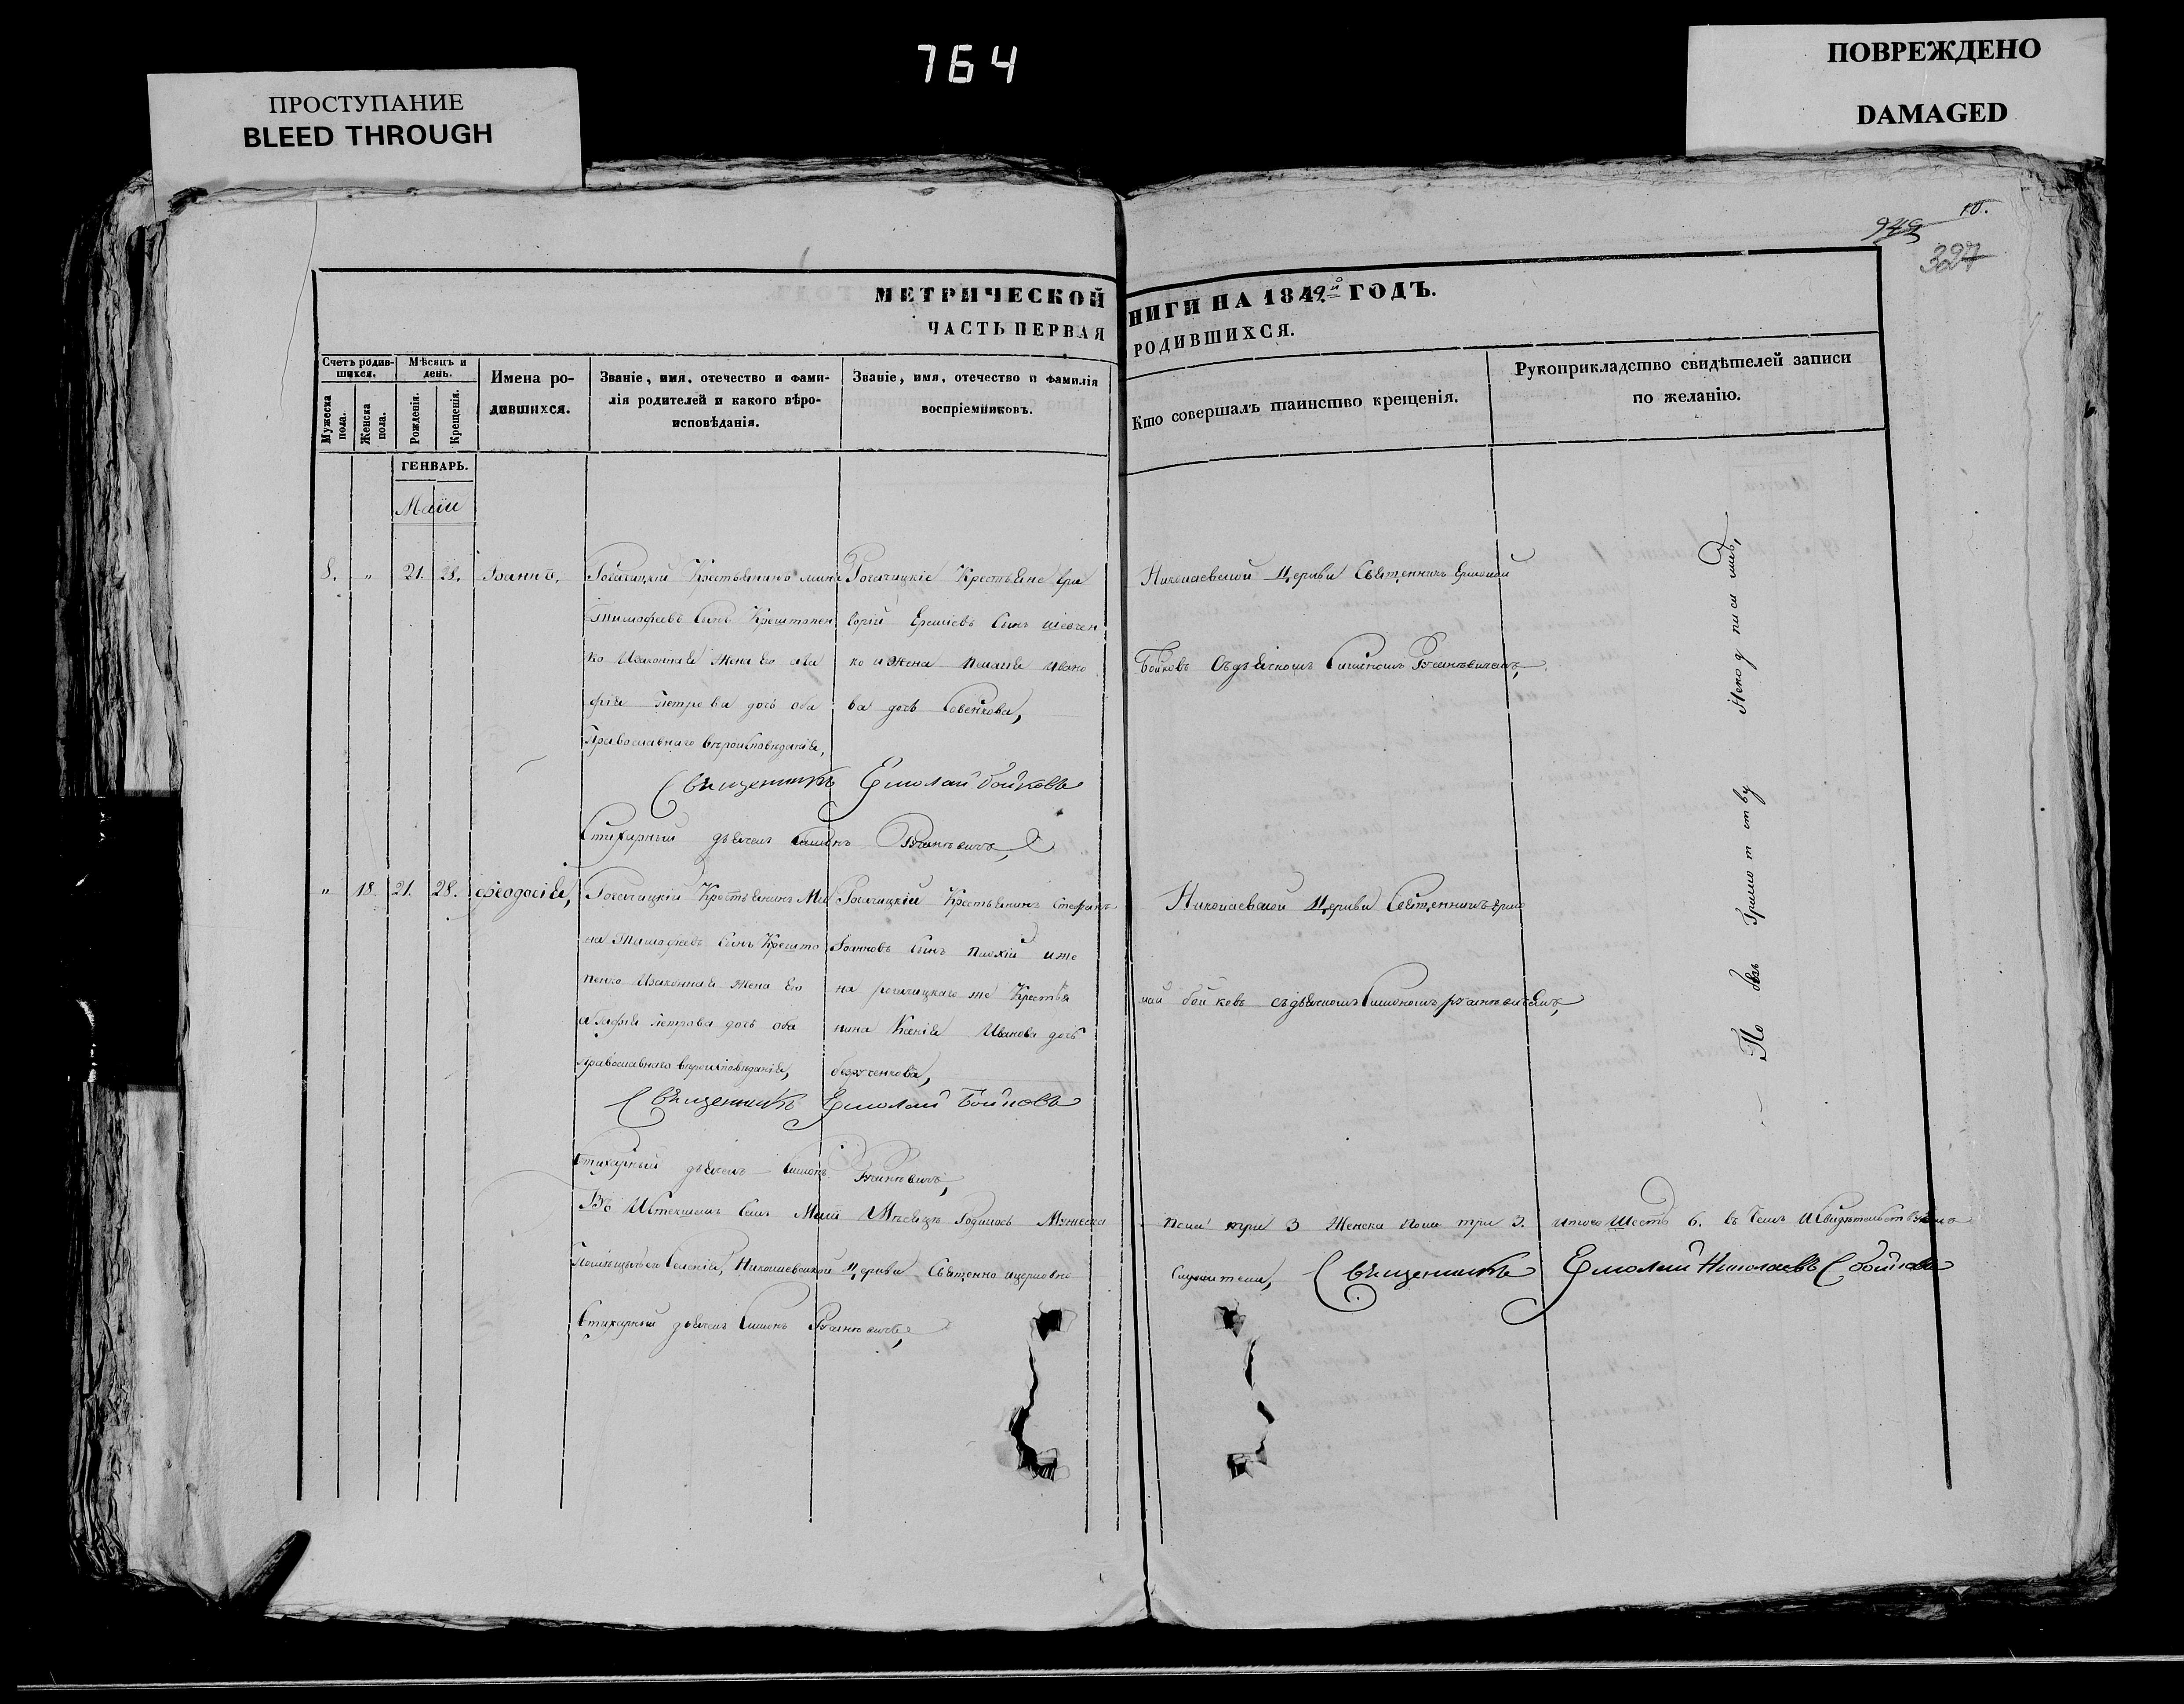 764
ПРОСТУПАНИЕ
BLEED THROUGH
ПОВРЕЖДЕНО
DAMAGED
10.
949
327
МЕТРИЧЕСКОЙ
НИГИ НА 1849.й ГОДЪ.
ЧАСТЬ ПЕРВАЯ
РОДИВШИХСЯ.
Счетъ родив-
шихся.
Мѣсяцъ и
день.
Мужеска
пола.
Женска
пола.
Рожденія.
Крещенія.
Имена ро-
дившихся.
Званіе, имя, отечество и фами-
лія родителей и какого вѣро-
исповѣданія.
Званіе, имя, отечество и фамилія
воспріемниковъ.
Кто совершалъ таинство крещенія.
Рукоприкладство свидѣтелей записи
по желанію.
ГЕНВАРЬ.
Маіи
8. " 21. 28. Іоаннъ,
Рогачицкій Крестьянинъ
Тимофеевъ Сынъ Крештопен
ко Изаконная Жена Его ага
фія Петрова дочь оба
Православнаго вѣроисповѣданія,
Рогачицкіе Крестьяне Гри
горій Сынъ Шевчен
ко и Жена Пелагія Ивано
ва дочь
Николаевской Церкви Священникъ Ермолай
Бойковъ Съ дьячкомъ Симономъ
Священникъ Ермолай Бойковъ
Стихарный дьячекъ Симонъ
" 18. 21. 28. Феодосія,
Рогачицкій Крестьянинъ Ми
на Тимофеевъ Сынъ Крешто
пенко Изаконная Жена Его
агафія Петрова дочь оба
Православнаго вѣроисповѣданія,
Рогачицкій Крестьянинъ Стефанъ
Іоанновъ Сынъ иже
на рогачицкаго же Крестья
нина Ксенія Иванова дочь
Николаевской Церкви Священникъ Ермо
лай Бойковъ съ дьячкомъ Симономъ
Священникъ Ермолай Бойковъ
Стихарный дьячекъ Симонъ
По безъ Грамотству Неподписались,
Въ Истекшемъ Семъ Маіи Мѣсяцѣ Родилось Мужеска
Пола три 3 Женска Пола три 3. итого Шесть 6. въ Чемъ И Свидѣтельствуемъ
Селенія, Николаевской Церкви Священно ицерковно
Служители, Священникъ Ермолай Николаевъ С. Бойковъ
Стихарный дьячекъ Симонъ